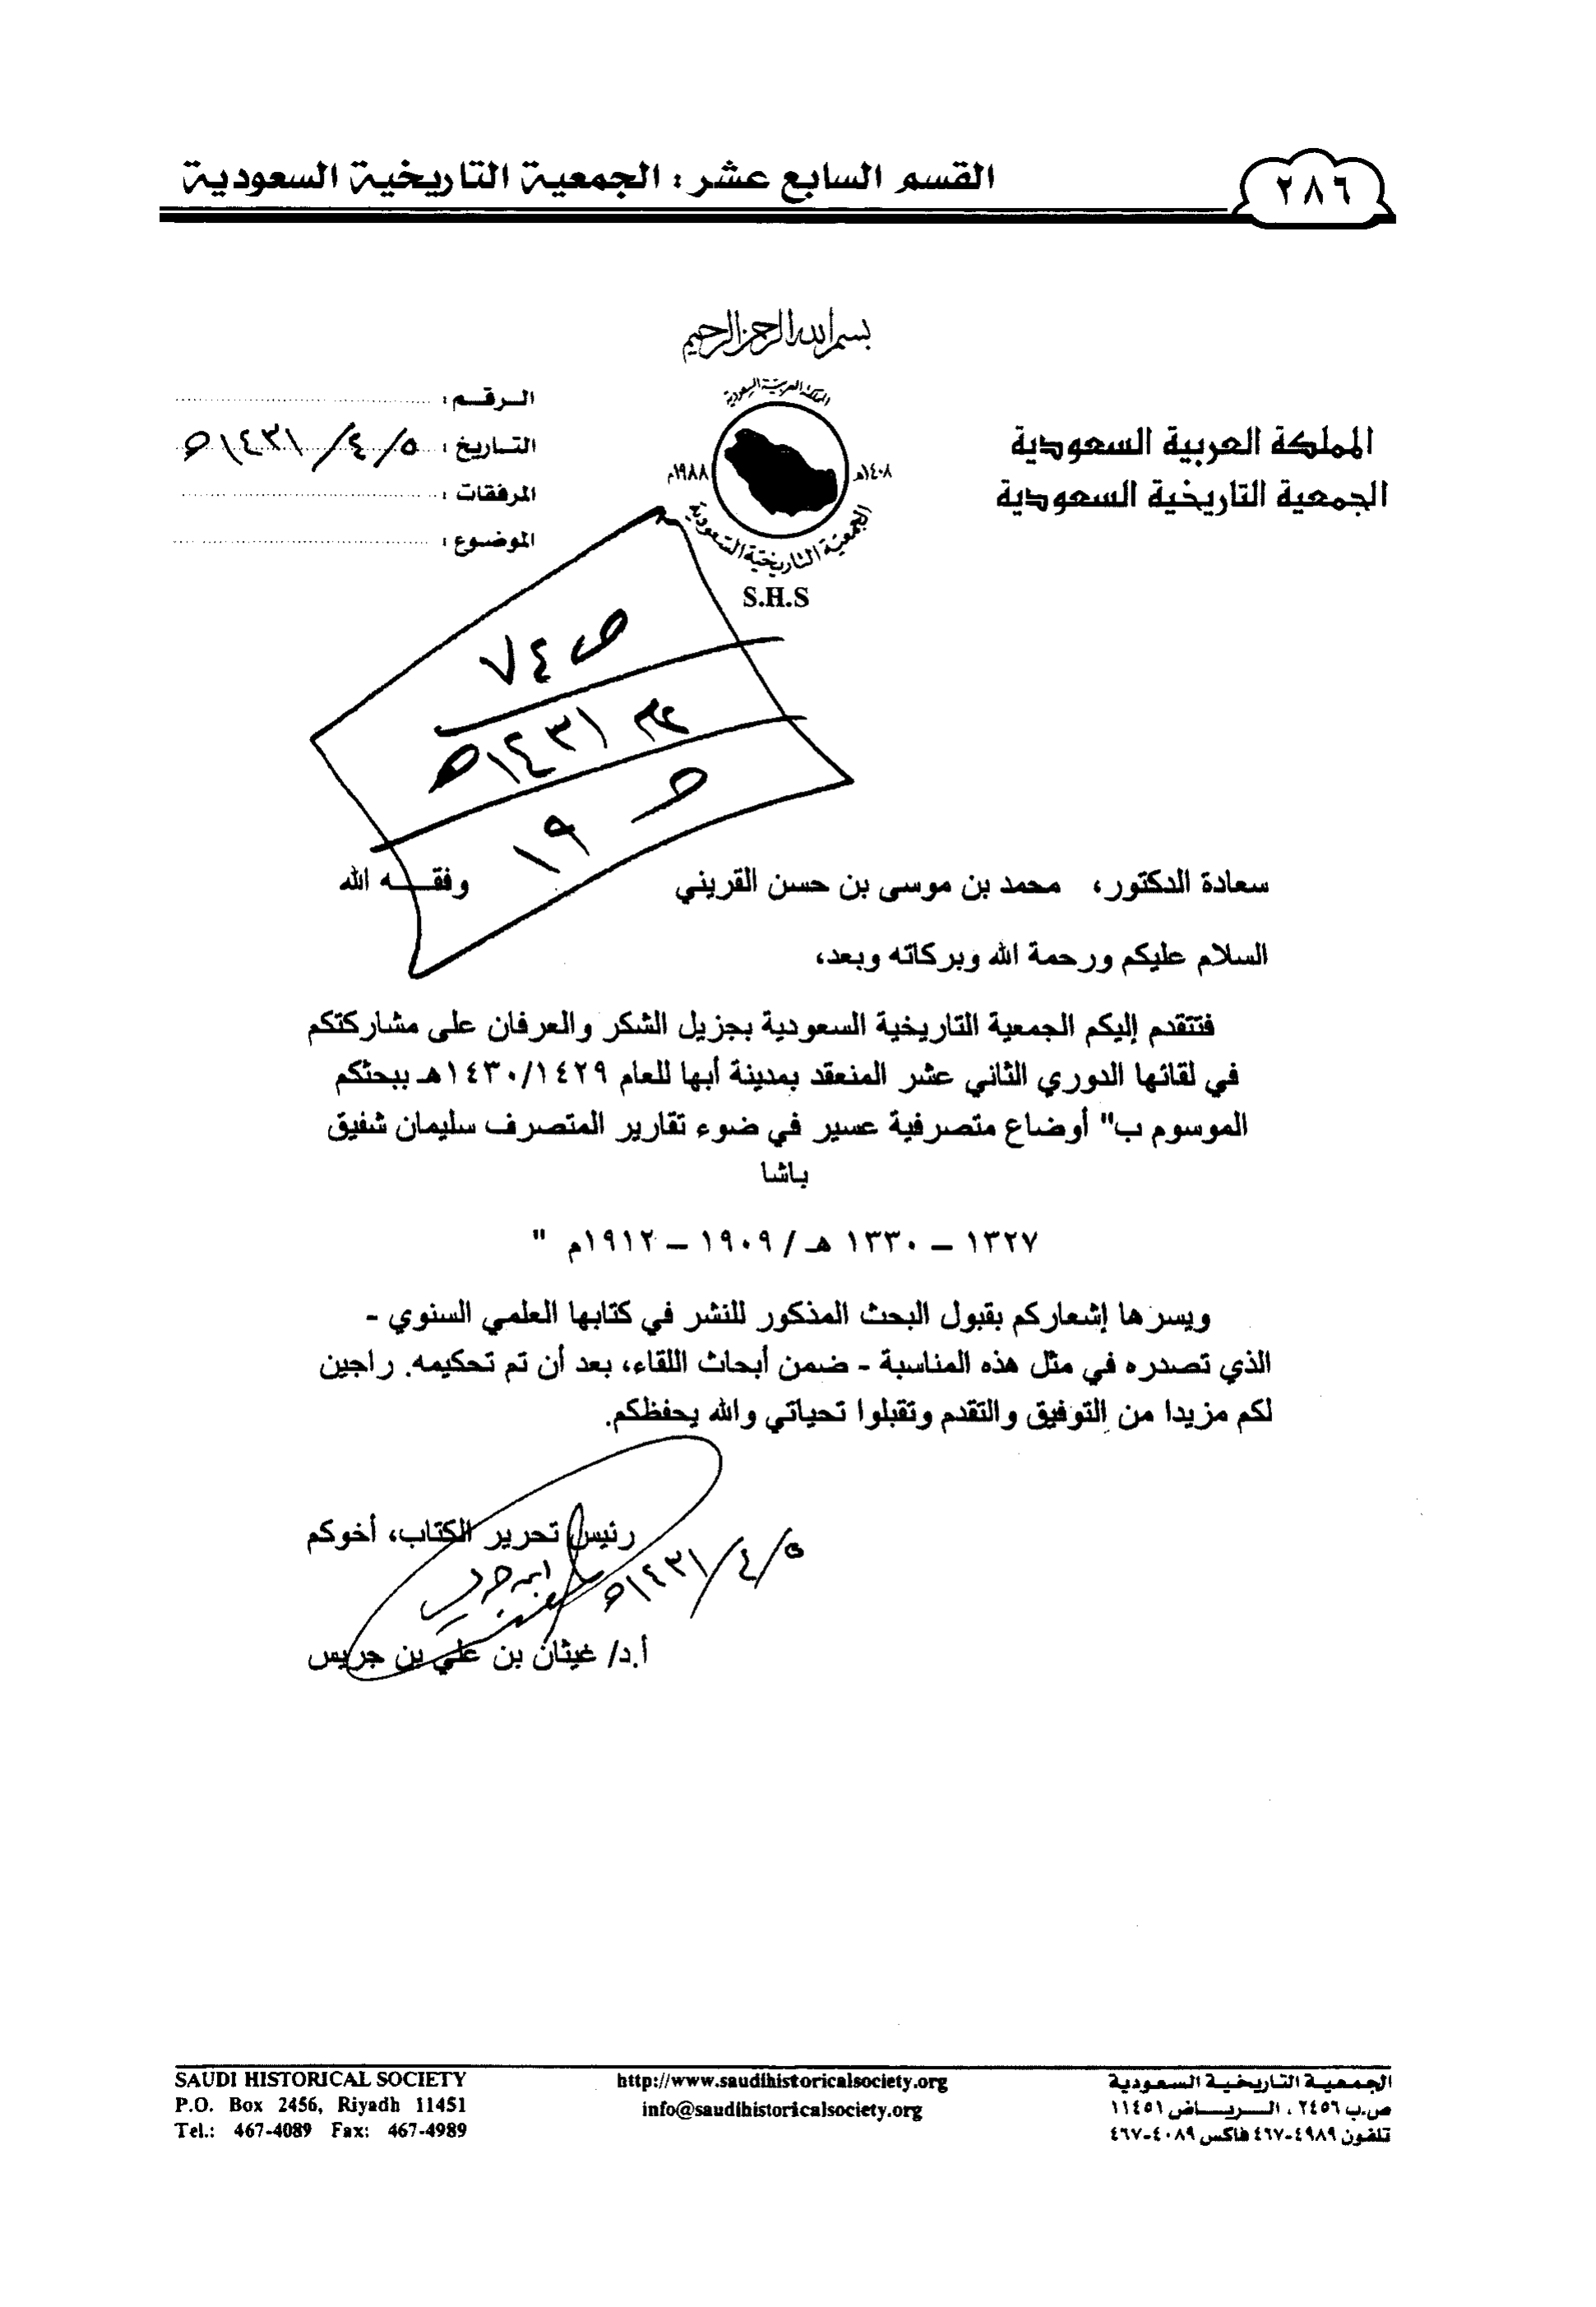 ٢٨٦
القسم السابع عشر : الجمعية التاريخية السعودية
بسم الله الرحمن الرحيم
المملكة العربية السعودية
الجمعية التاريخية السعودية
المملكة العربية السعودية
١٤٠٨هـ
١٩٨٨م
الجمعية التاريخية السعودية
S.H.S
الـرقـم :
التـاريخ : ٥/٤/١٤٣١هـ
المرفقات :
الموضـوع :
ص ٧٤
١٤٣١هـ
١٩
سعادة الدكتور، محمد بن موسى بن حسن القريني وفقـــه الله
السلام عليكم ورحمة الله وبركاته وبعد،
فتتقدم إليكم الجمعية التاريخية السعودية بجزيل الشكر والعرفان على مشاركتكم
في لقائها الدوري الثاني عشر المنعقد بمدينة أبها للعام ١٤٣٠/١٤٢٩هـ ببحثكم
الموسوم ب" أوضاع متصرفية عسير في ضوء تقارير المتصرف سليمان شفيق
باشا
١٣٢٧ – ١٣٣٠ هـ / ١٩٠٩ – ١٩١٢م "
ويسرها إشعاركم بقبول البحث المذكور للنشر في كتابها العلمي السنوي -
الذي تصدره في مثل هذه المناسبة - ضمن أبحاث اللقاء، بعد أن تم تحكيمه. راجين
لكم مزيدا من التوفيق والتقدم وتقبلوا تحياتي والله يحفظكم.
رئيس تحرير الكتاب، أخوكم
٥/٤/١٤٣١هـ
أ.د/ غيثان بن علي بن جريس
الجـمـعيـة التـاريخـيـة السـعـودية
ص.ب ٢٤٥٦ ، الـــريـــاض ١١٤٥١
تلفون ٤٩٨٩-٤٦٧ فاكس ٤٠٨٩-٤٦٧
http://www.saudihistoricalsociety.org
info@saudihistoricalsociety.org
SAUDI HISTORICAL SOCIETY
P.O. Box 2456, Riyadh 11451
Tel.: 467-4089 Fax: 467-4989